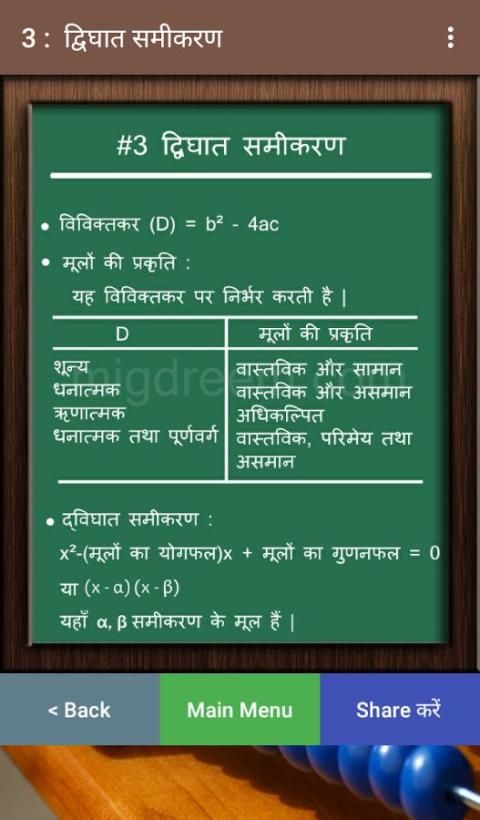 3 : द्विघात समीकरण
#3 द्विघात समीकरण
• विविक्तकर (D) = b² - 4ac
• मूलों की प्रकृति :
यह विविक्तकर पर निर्भर करती है |
D मूलों की प्रकृति
शून्य वास्तविक और सामान
धनात्मक वास्तविक और असमान
ऋणात्मक अधिकल्पित
धनात्मक तथा पूर्णवर्ग वास्तविक, परिमेय तथा
असमान
• द्विघात समीकरण :
x²-(मूलों का योगफल)x + मूलों का गुणनफल = 0
या (x - α) (x - β)
यहाँ α, β समीकरण के मूल हैं |
< Back Main Menu Share करें